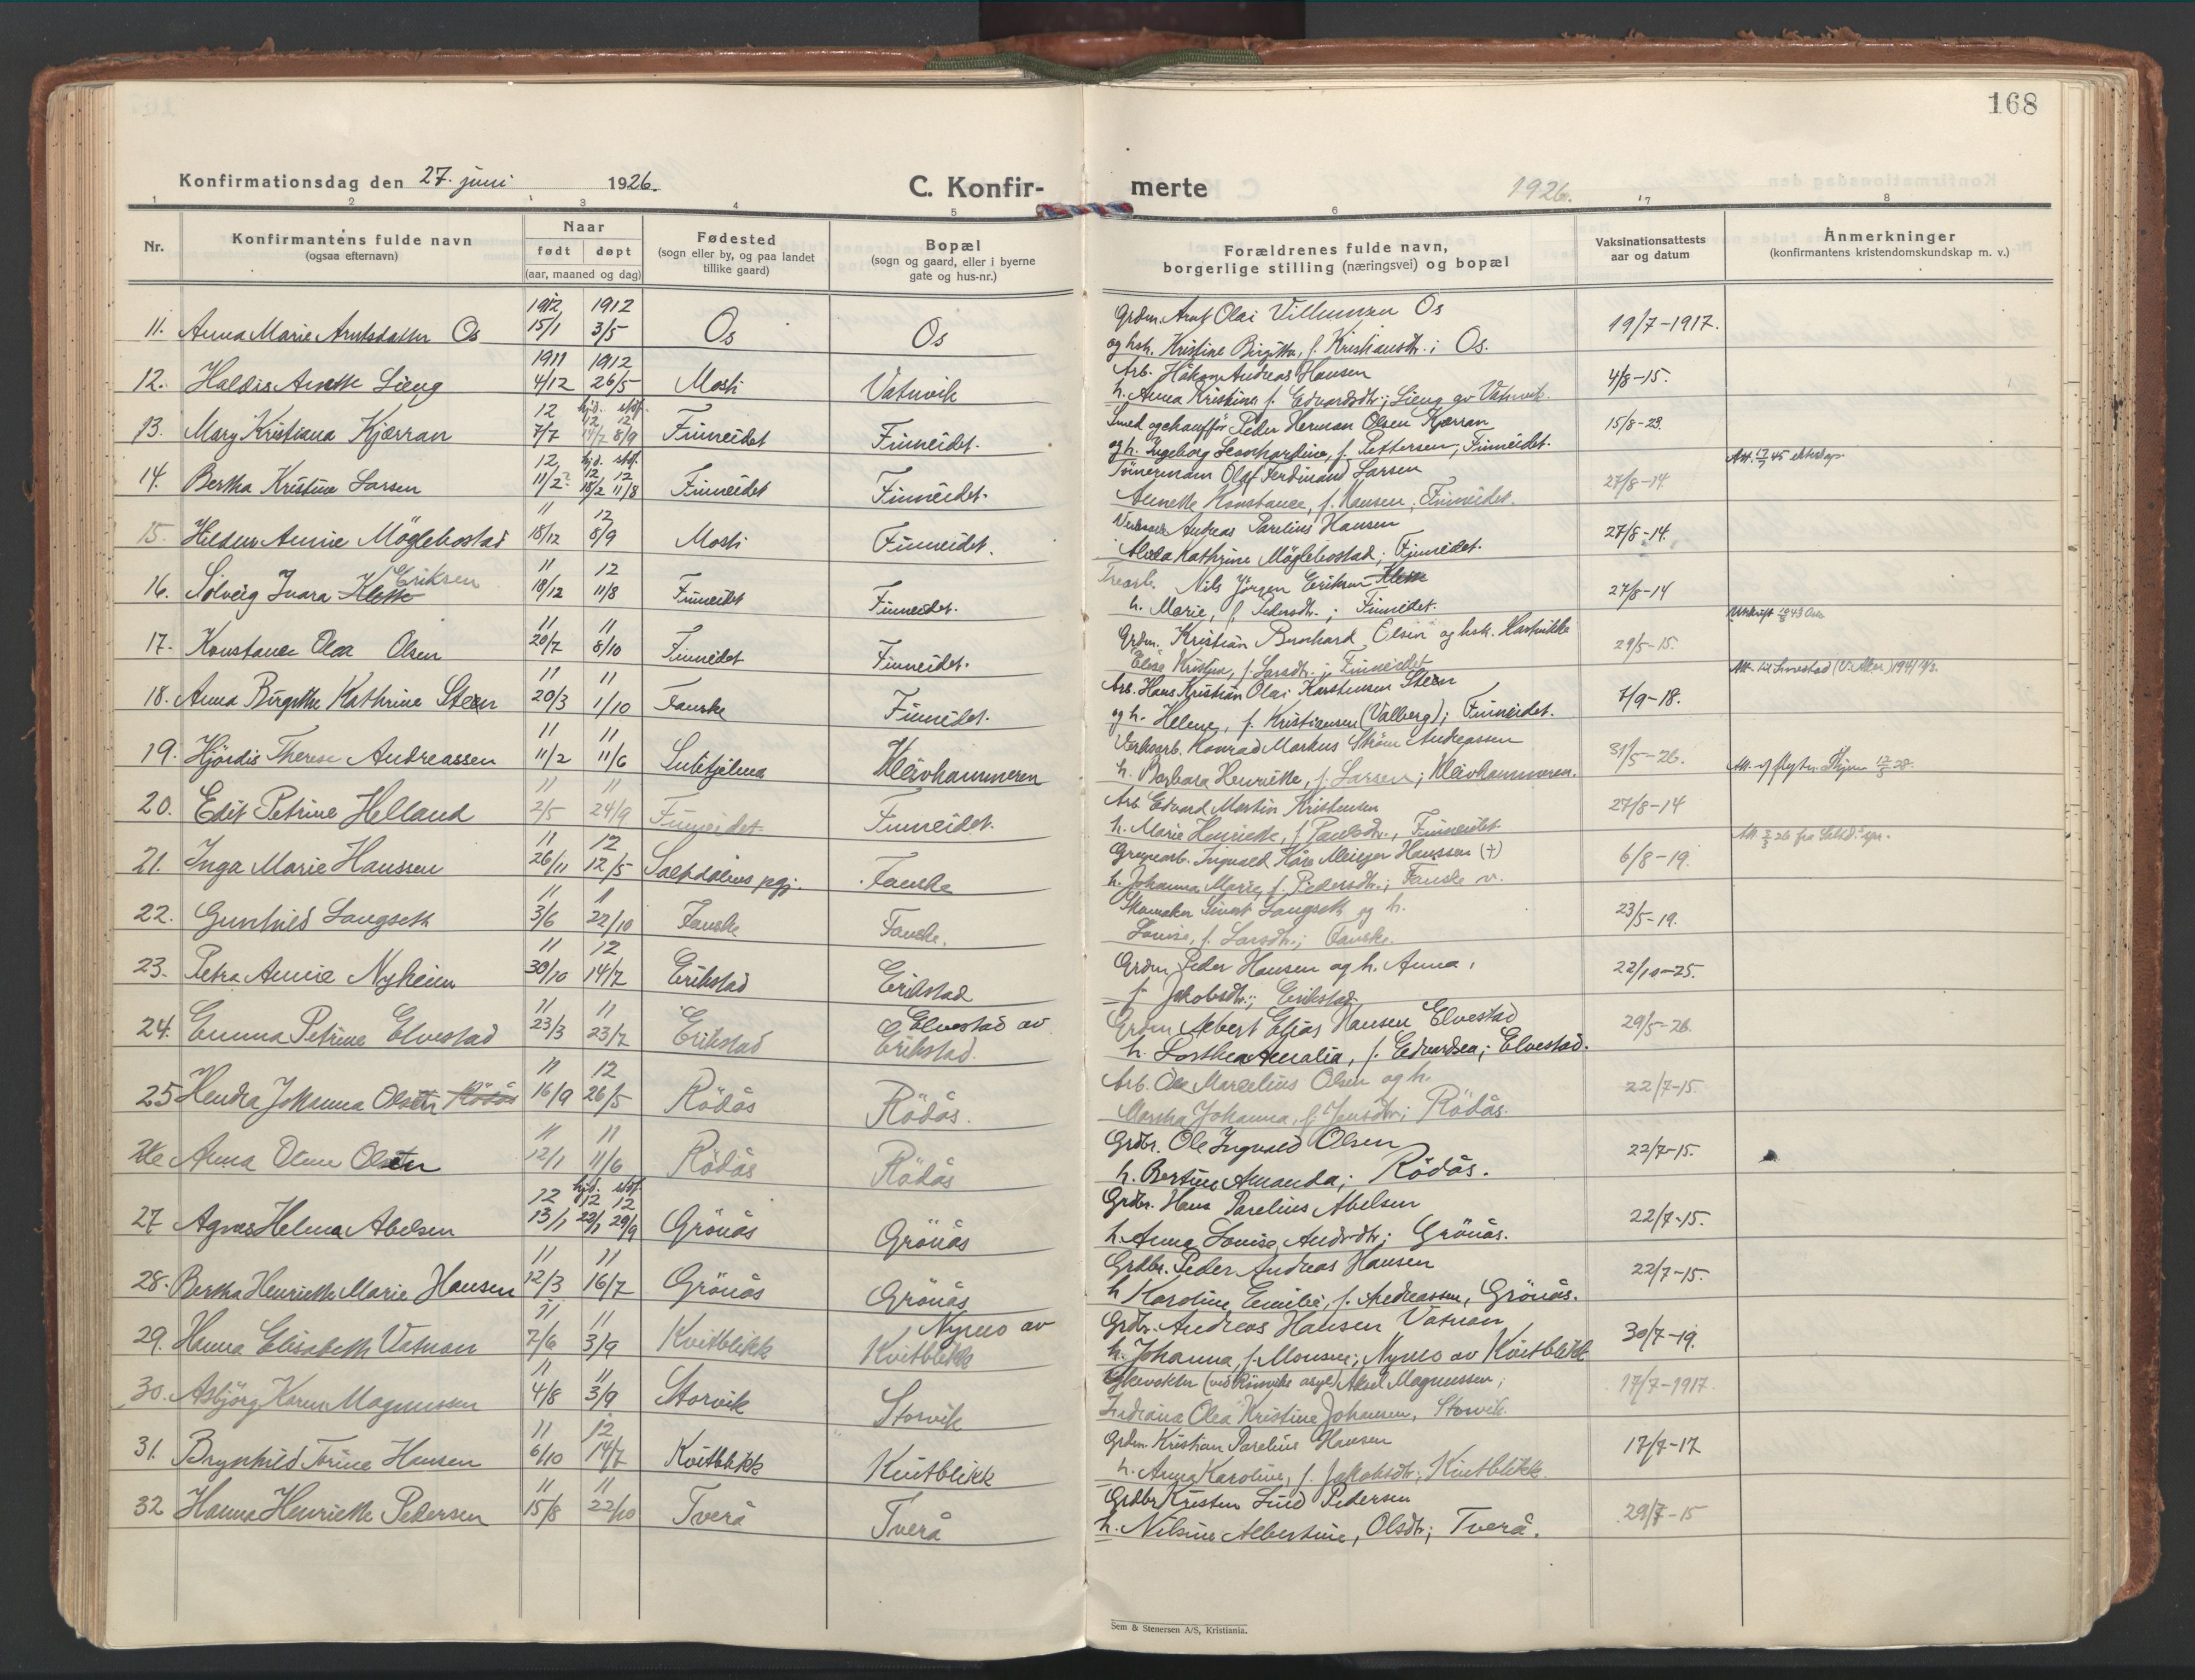 168
Konfirmationsdag den 27. juni 1926.
C. Konfir-
merte
1926.
1 2 3 4 5 6 7 8
Nr.
Konfirmantens fulde navn
(ogsaa efternavn)
Naar
født døpt
(aar, maaned og dag)
Fødested
(sogn eller by, og paa landet
tillike gaard)
Bopæl
(sogn og gaard, eller i byerne
gate og hus-nr.)
Forældrenes fulde navn,
borgerlige stilling (næringsvei) og bopæl
Vaksinationsattests
aar og datum
Anmerkninger
(konfirmantens kristendomskundskap m. v.)
1912 1912
11. Anna Marie Arntsdatter Os 15/1 3/5 Os Os
Grdm. Arnt Olai Villumsen Os
og hst. Kristine Birgitte, f. Kristiansdtr. ; Os.
19/7-1917.
1911 1912
12. Haldis Anette Lieng 4/12 26/5 Mosti Vatnvik
Arb. Håkon Andreas Hansen
h. Anna Kristine f. Edvardsdtr; Lieng av Vatnvik.
4/8-15.
12 hjd. stdf.
12 12
13. Mary Kristiana Kjærran 7/7 14/7 8/9 Finneidet Finneidet.
Smed og chauffør Peder Herman Olsen Kjærran
og h. Ingeborg Leonhardine, f. Pettersen; Finneidet.
15/8-23.
12 hjd. stdf.
12 12
14. Bertha Kristine Larsen 11/2 18/2 11/8 Finneidet Finneidet.
Tømermann Olaf Ferdinand Larsen
Annette Konstance, f. Hansen; Finneidet.
27/8-14
11 12
15. Annie Möglebostad 18/12 8/9 Mosti Finneidet.
Andreas Parelius Hansen
Alida Kathrine Möglebostad; Finneidet.
27/8-14.
Eriksen
11 12
16. Solveig Ivara Klette 18/12 11/8 Finneidet Finneidet.
Nils Jörgen Eriksen Klette
h. Marie, f. Pedersdtr. ; Finneidet.
27/8-14
11 11
17. Konstance Olea Olsen 20/7 8/10 Finneidet Finneidet.
Grdm. Kristian Bernhard Olsen og hst.
Elise Kristine, f. Larsdtr. ; Finneidet
29/5-15.
11 11
18. Anna Birgitte Kathrine Steen 20/3 1/10 Fauske Finneidet.
Arb. Hans Kristian Olai Karstensen Steen
og h. Helene, f. Kristiansen (Valberg); Finneidet.
7/9-18.
11 11
19. Hjördis Therese Andreassen 11/2 11/6 Sulitjelma Kleivhammeren
Verksarb. Konrad Markus Ström Andreassen
h. Barbara Henriette, f. Larsen; Kleivhammeren.
31/5-26.
11 11
20. Edit Petrine Helland 2/5 24/9 Finneidet Finneidet.
Arb. Edvard Martin Kristensen
h. Marie Henriette, f. Paulsdtr., Finneidet
27/8-14
11 12
21. Inga Marie Hanssen 26/11 12/5 Saltdalens pgj. Fauske
Grubearb. Ingvald Kåre Meiejer Hanssen (+)
h. Johanna Marie, f. Pedersdtr.; Fauske v.
6/8-19.
22. Gunhild Langseth 3/6 22/10 Fauske Fauske.
Skomaker Sivert Langseth og h.
Louise, f. Larsdtr.; Fauske.
23/5-19.
11 12
23. Petra Annie Nyheim 30/10 14/7 Erikstad Erikstad
Grdm Peder Hansen og h. Anna,
f. Jakobsdtr.; Erikstad.
22/10-25.
11 11
Elvestad av
24. Emma Petrine Elvestad 23/3 23/7 Erikstad Erikstad.
Grdm Albert Elias Hansen Elvestad
h. Lorthea Amalia, f. Edvardsen; Elvestad.
29/5-26.
11 12
25 Hendra Johanna Olsen Rödås 16/9 26/5 Rödås Rödås.
Arb. Ole Marcelius Olsen og h.
Martha Johanna, f. Jensdtr; Rödås.
22/7-15.
11 11
26 Anna Olsen 12/1 11/6 Rödås Rödås
Grdbr. Ole Ingvald Olsen
h. Bertine Amanda; Rödås.
22/7-15.
12 hjd. stdf.
12 12
27 Agnes Helena Abelsen 13/1 22/1 29/9 Grönås Grönås
Grdbr. Hans Parelius Abelsen
h. Anna Louise Andrdtr; Grönås.
22/7-15.
11 11
28. Bertha Henriette Marie Hansen 12/3 16/7 Grönås Grönås
Grdbr. Peder Andreas Hansen
h Karoline Emilie, f. Andreassen, Grönås.
22/7-15.
11 11
Nymo av
29. Hanna Elisabeth Vatnan 7/6 3/9 Kvitblikk Kvitblikk
Grdbr. Andreas Hansen Vatnan
h. Johanna, f. Monsen; Nymo av Kvitblikk
30/7-19.
11 11
30. Asbjörg Karen Magnussen 4/8 3/9 Storvik Storvik
(ved Rönvik asyl) Aksel Magnussen;
Indiana Olea Kristine Johansen, Storvik.
17/7-1917.
11 12
31. Brynhild Torine Hansen 6/10 14/7 Kvitblikk Kvitblikk
Grdm. Kristian Parelius Hansen
h. Anna Karoline, f. Jakobsdtr; Kvitblikk.
17/7-17
11 11
32 Hanna Henriette Pedersen 15/8 22/10 Tverå Tverå
Grdbr Kristen Lind Pedersen
h. Nilsine Albertine, Olsdtr; Tverå.
29/7-15
Sem & Stenersen A/S, Kristiania.